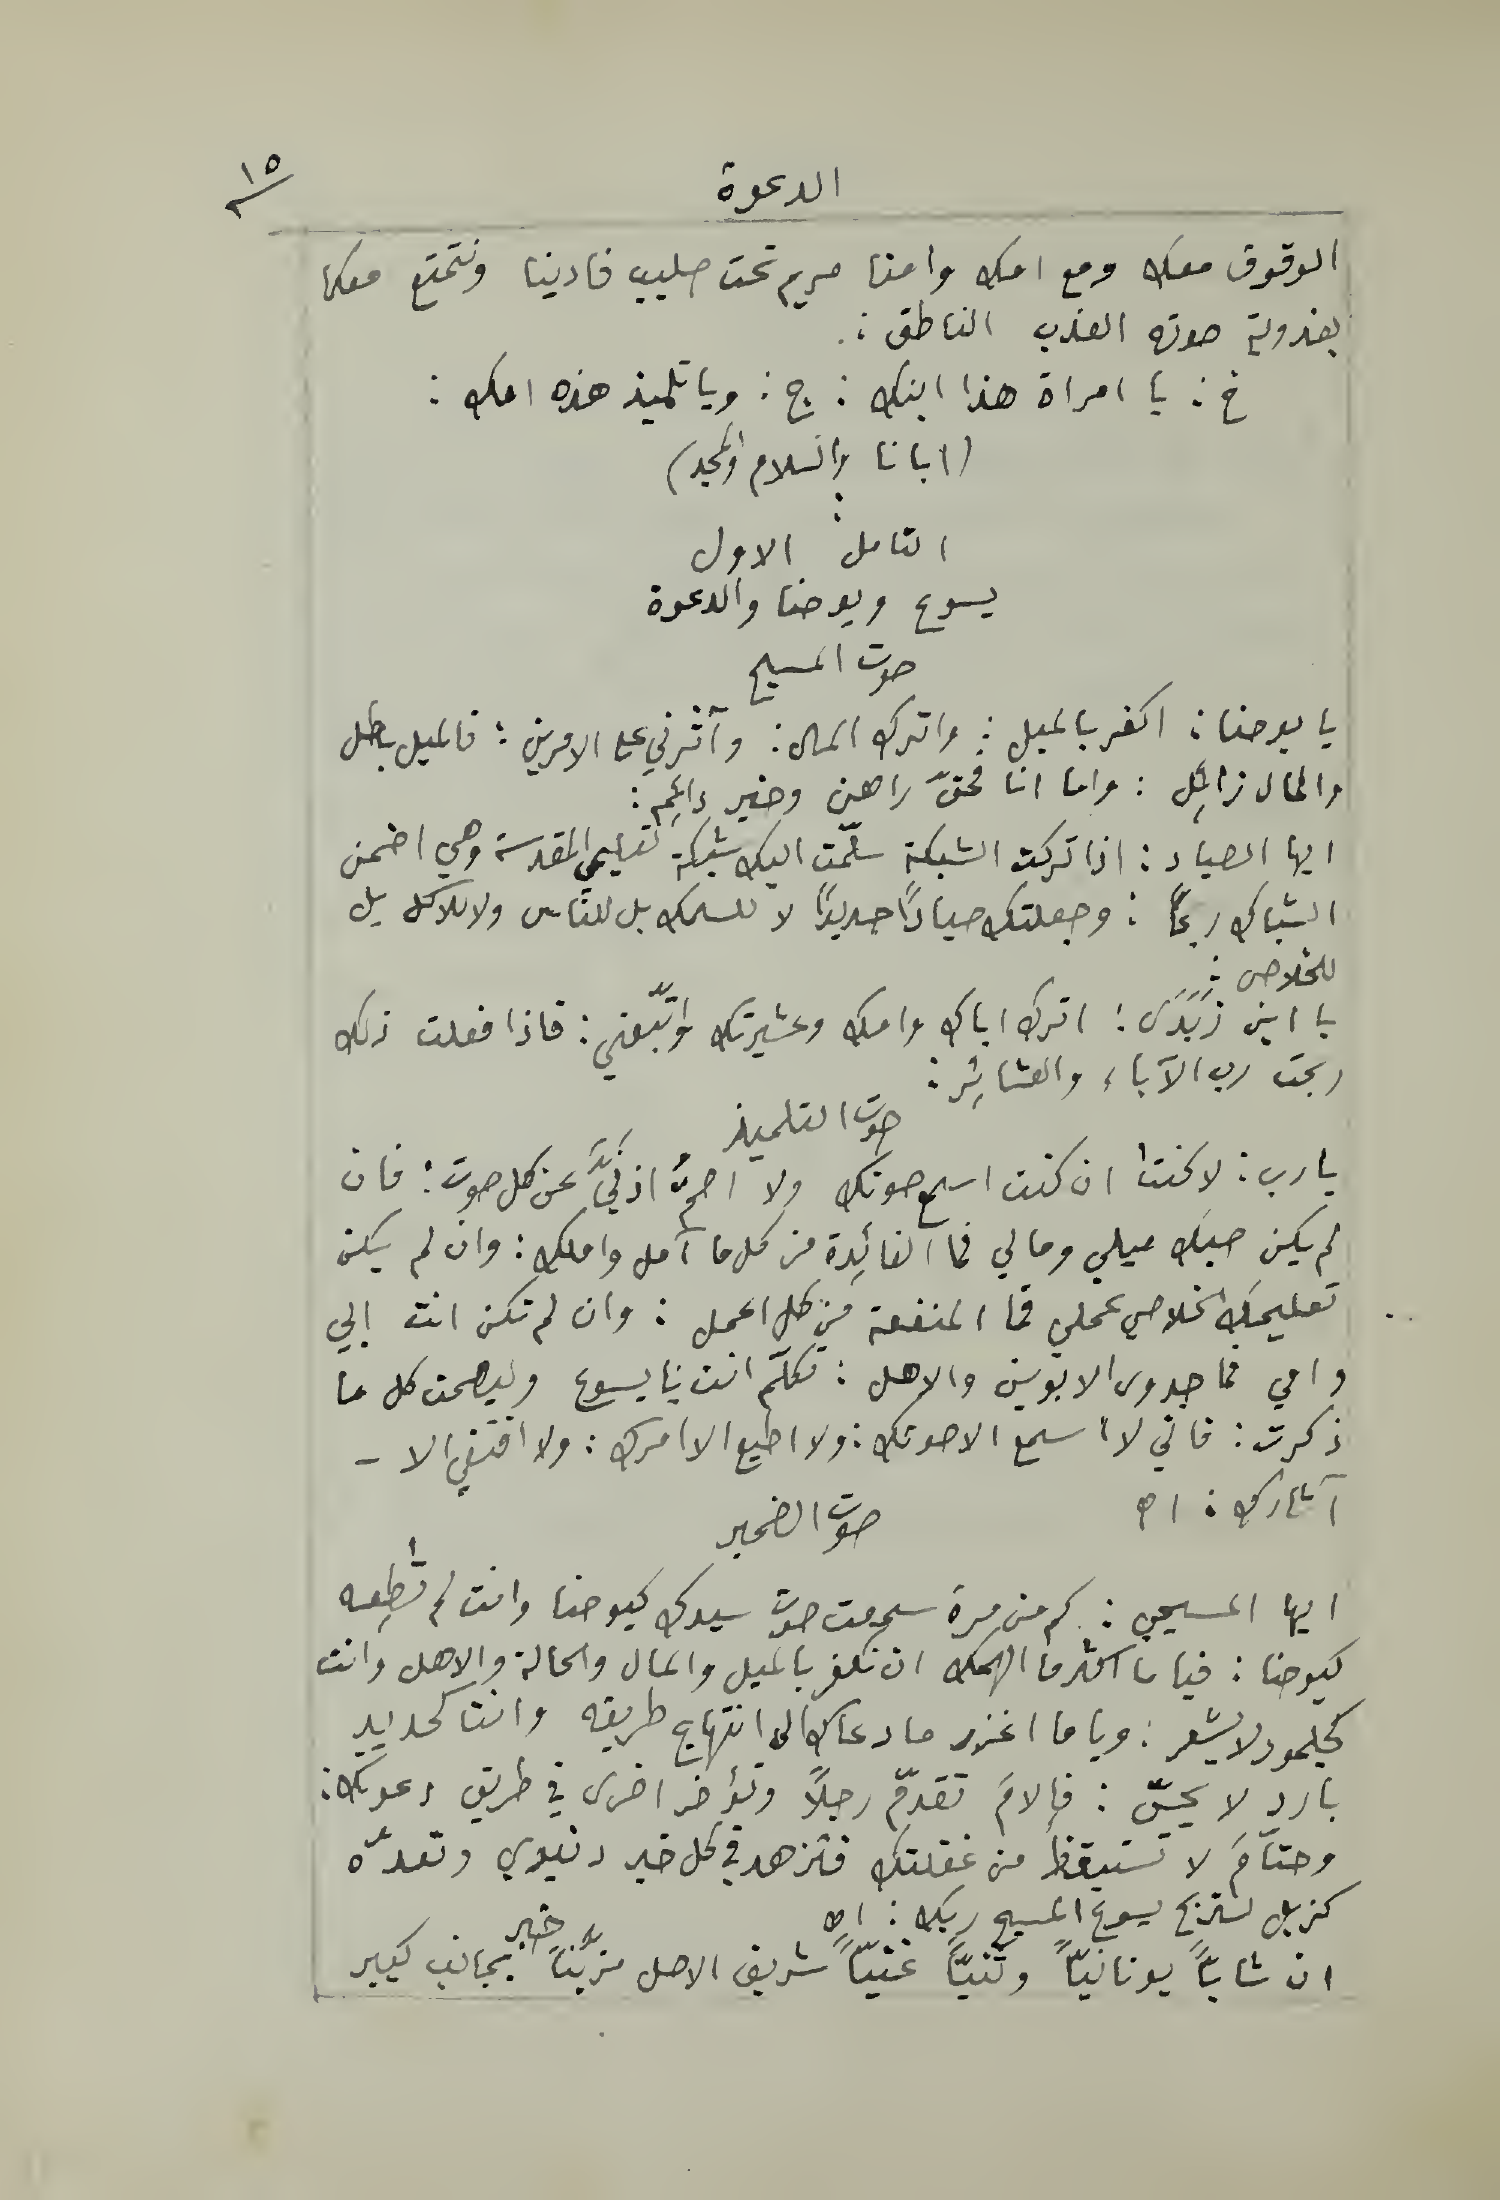 الدعوة
١٥
الوقوف معك ومع امك وامنا مريم تحت صليب فادينا ونتمتع معكما
بعذوبة صوته العذب الناطق :.
خ : يا امراة هذا ابنك : ج : ويا تلميذ هذه امك :
(ابانا والسلام والمجد)
التامل الاول
يسوع ويوحنا والدعوة
صوت المسيح
يا يوحنا : اكفر بالميل : واترك المال : وآثرني على الامرين : فالميل باطل
والمال زائل : واما انا فحقّ راهن وخير دائم :
ايها الصياد : اذا تركت الشبكة سلّمت اليك شبكة تعليمي المقدسة وهي اضمن
الشباك ربحًا : وجعلتك صيادًا جديدًا لا للسمك بل للنّاس ولا للاكل بل
للخلاص :
يا ابن زَبَدَى : اترك اباك وامك وعشيرتك واتّبعني : فاذا فعلت ذلك
ربحت رب الآباء والعشائر :
صوت التلميذ
يا رب : لا كنت ان كنت اسمع صوتك ولا اصمُّ اذنَيَّ عن كل صوت : فان
لم يكن حبك ميلي ومالي فما الفائدة من كل ما آمل واملك : وان لم يكن
تعليمك الخلاصي عملي فما المنفعة من كل اعمل : وان لم تكن انت ابي
وامي فما جدوى الابوين والاهل : تكلّم انت يا يسوع وليصمت كل ما
ذكرت : فاني لا اسمع الا صوتك : ولا اطيع الا امرك : ولا اقتفي الا -
آثارك : اه
صوت الضمير
ايها المسيحي : كم من مرة سمعت صوت سيدك كيوحنا وانت لم تُطِعه
كيوحنا : فيا ما اكثر ما الهمك ان تكفر بالميل والمال والحالة والاهل وانت
كجلمود لا يشعر : ويا ما اغزر ما دعاك الى انتهاج طريقه وانت كحديد
بارد لا يحسّ : فإلامَ تقدّم رجلاً وتؤخر اخرى في طريق دعوتك :
وحتّامَ لا تستيقظ من غفلتك فتزهد في كل خير دنيوي وتعدّه
كزبل لتربح يسوع المسيح ربك : اه
ان شابّاً يونانيّاً وثنيّاً غنيّاً شريف الاصل مزيّناً بجانب كبير
خير